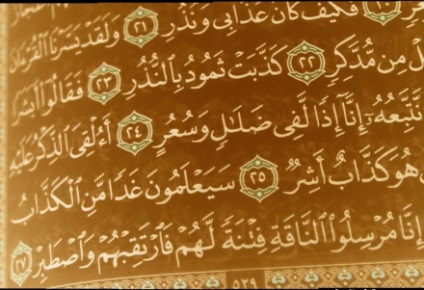 فَكَيْفَ كَانَ عَذَابِى وَنُذُرِ ٢١ وَلَقَدْ يَسَّرْنَا ٱلْقُرْءَانَ
مِن مُّدَّكِرٍ ٢٢ كَذَّبَتْ ثَمُودُ بِٱلنُّذُرِ ٢٣ فَقَالُوٓا۟ أَبَشَرًا
نَّتَّبِعُهُۥٓ إِنَّآ إِذًا لَّفِى ضَلَٰلٍ وَسُعُرٍ ٢٤ أَءُلْقِىَ ٱلذِّكْرُ عَلَيْهِ
هُوَ كَذَّابٌ أَشِرٌ ٢٥ سَيَعْلَمُونَ غَدًا مَّنِ ٱلْكَذَّابُ
إِنَّا مُرْسِلُوا۟ ٱلنَّاقَةِ فِتْنَةً لَّهُمْ فَٱرْتَقِبْهُمْ وَٱصْطَبِرْ ٢٧
٥٢٩